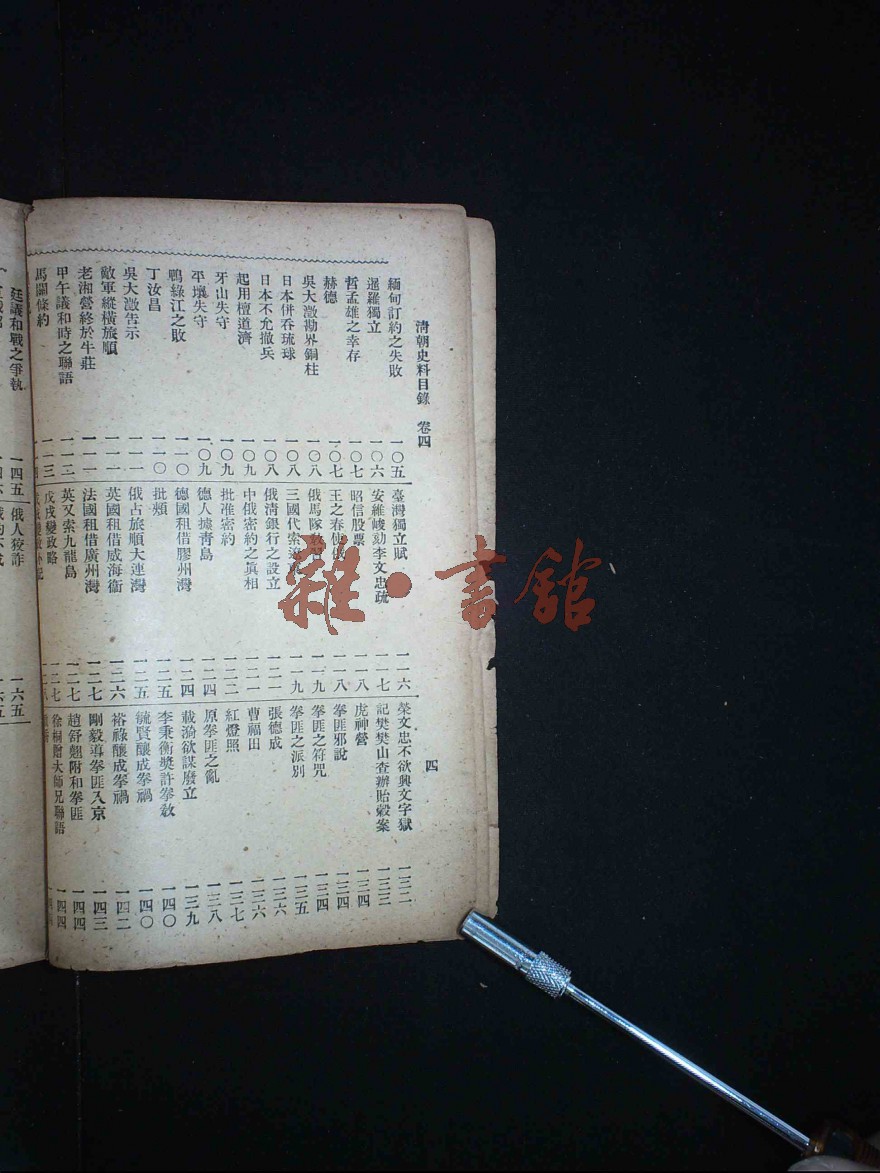 清朝史料目錄 卷四 四
緬甸訂約之失敗 一〇五
暹羅獨立 一〇六
哲孟雄之幸存 一〇七
赫德 一〇七
吳大澂勘界銅柱 一〇八
日本併吞琉球 一〇八
日本不允撤兵 一〇八
起用檀道濟 一〇九
牙山失守 一〇九
平壤失守 一〇九
鴨綠江之敗 一一〇
丁汝昌 一一〇
吳大澂告示 一一一
敵軍縱橫旅順 一一一
老湘營終於牛莊 一一一
甲午議和時之聯語 一一二
馬關條約 一一三
臺灣獨立賦 一一六
安維峻劾李文忠疏 一一七
昭信股票 一一八
王之春使俄 一一八
俄馬隊敎習 一一九
三國代索遼東 一一九
俄清銀行之設立 一二一
中俄密約之眞相 一二一
批准密約 一二二
德人據靑島 一二四
德國租借膠州灣 一二四
批頰 一二五
俄占旅順大連灣 一二五
英國租借威海衞 一二六
法國租借廣州灣 一二七
英又索九龍島 一二七
戊戌變政略 一二七
榮文忠不欲興文字獄 一三二
記樊樊山查辦貽穀案 一三三
虎神營 一三四
拳匪邪說 一三四
拳匪之符咒 一三四
拳匪之派別 一三五
張德成 一三六
曹福田 一三六
紅燈照 一三七
原拳匪之亂 一三八
載漪欲謀廢立 一三九
李秉衡獎許拳敎 一四〇
毓賢釀成拳禍 一四〇
裕祿釀成拳禍 一四二
剛毅導拳匪入京 一四三
趙舒翹附和拳匪 一四四
徐桐贈大師兄聯語 一四四
廷議和戰之爭執 一四五
俄人狡詐 一六五
雜·書館